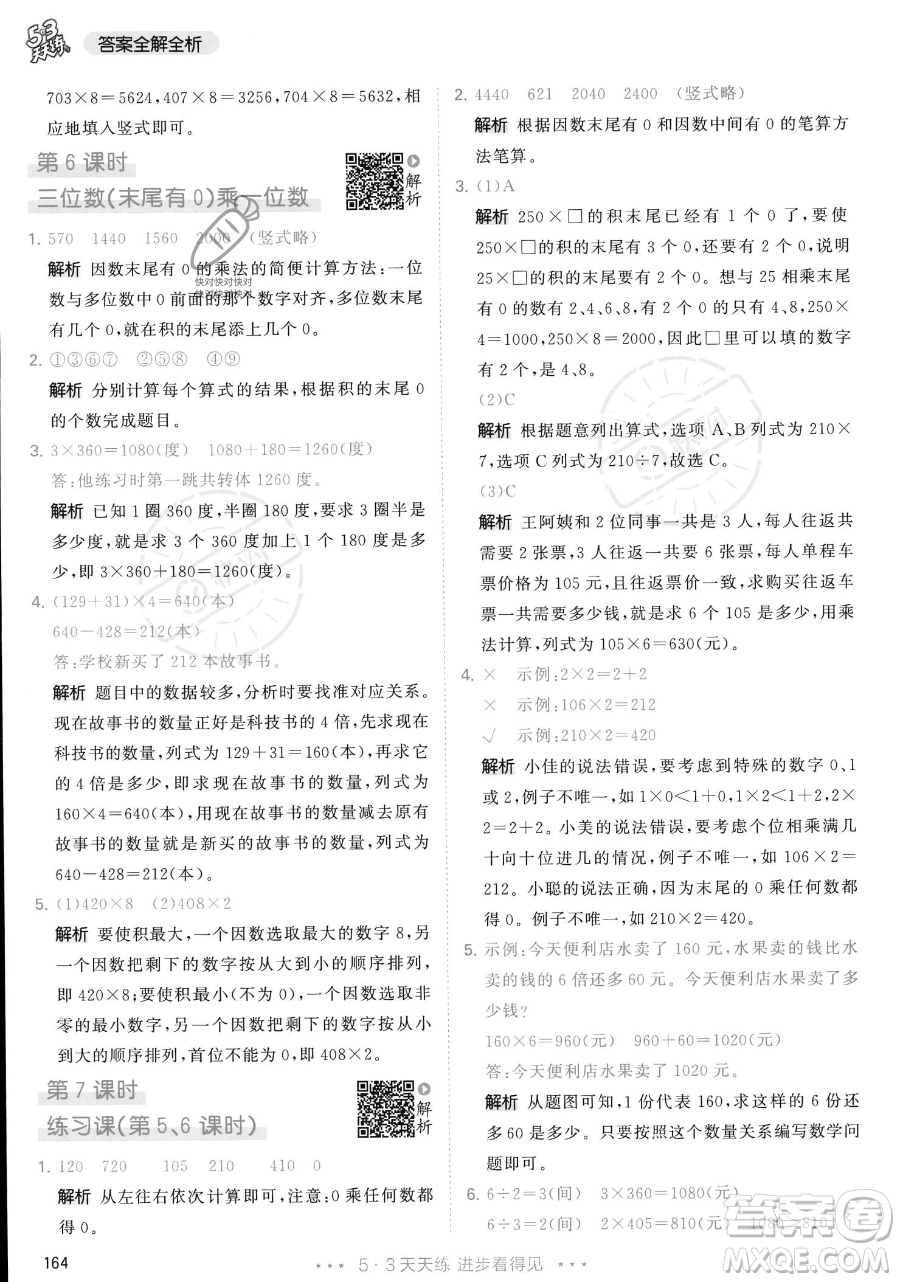 5·3
天天练
答案全解全析
703×8=5624,407×8=3256,704×8=5632,相
应地填入竖式即可。
第 6 课时
三位数(末尾有 0)乘一位数
解析
1. 570 1440 1560 2000 (竖式略)
解析 因数末尾有 0 的乘法的简便计算方法:一位
数与多位数中 0 前面的那个数字对齐,多位数末尾
有几个 0,就在积的末尾添几个 0。
快对快对快对
快对快对快对
2. ①③⑥⑦ ②⑤⑧ ④⑨
解析 分别计算每个算式的结果,根据积的末尾 0
的个数完成题目。
3. 3×360=1080(度) 1080+180=1260(度)
答:他练习时第一跳共转体 1260 度。
解析 已知 1 圈 360 度,半圈 180 度,要求 3 圈半是
多少度,就是求 3 个 360 度加上 1 个 180 度是多
少,即 3×360+180=1260(度)。
4. (129+31)×4=640(本)
640-428=212(本)
答:学校新买了 212 本故事书。
解析 题目中的数据较多,分析时要找准对应关系。
现在故事书的数量正好是科技书的 4 倍,先求现在
科技书的数量,列式为 129+31=160(本),再求它的 4
倍是多少,即求现在故事书的数量,列式为
160×4=640(本),用现在故事书的数量减去原来
故事书的数量就是新买的故事书的数量,列式为
640-428=212(本)。
5. (1)420×8 (2)408×2
解析 要使积最大,一个因数选取最大的数字 8,另
一个因数把剩下的数字按从大到小的顺序排列,
即 420×8;要使积最小(不为 0),一个因数选取非
零的最小数字,另一个因数把剩下的数字按从小
到大的顺序排列,首位不能是 0,即 408×2。
第 7 课时
练习课(第 5、6 课时)
解析
1. 120 720 105 210 410 0
解析 从左往右依次计算即可,注意:0 乘任何数都
得 0。
2. 4440 621 2040 2400 (竖式略)
解析 根据因数末尾有 0 和因数中间有 0 的笔算方
法笔算。
3. (1)A
解析 250×□的积末尾已经有 1 个 0 了,要使
250×□的积的末尾有 3 个 0,还要有 2 个 0,要使
25×□的积的末尾出现 2 个 0。想与 25 相乘末尾
有 0 的数有 2、4、6、8,有 2 个 0 的只有 4、8,25×
4=1000,25×8=200,因此□里可以填的数字
有 2 个,是 4、8。
(2)C
解析 根据题意列出算式,选项 A、B 列式为 210×
7,选项 C 列式为 210÷7,故选 C。
(3)C
解析 王阿姨和 2 位同事一共是 3 人,每人往返共
需 2 张票,三人就需要 6 张票,又已知每人单程车
票价格为 105 元,所以要求购买往返车
票一共需要多少钱,就是求 6 个 105 是多少,用乘
法计算,列式为 105×6=630(元)。
4. × 示例:2×2=2+2
× 示例:106×2=212
√ 示例:210×2=420
解析 小佳的说法错误,要考虑到特殊的数字 0、1
或 2,例子不唯一,如 1×0<1+0,1×1<1+1,
2×2=2+2。小美的说法错误,要考虑个位相乘满几
十向十位进几的情况,例子不唯一,如 106×2=
212。小聪的说法正确,因为末尾的 0 乘任何数都
得 0。例子不唯一,如 210×2=420。
5. 示例:今天便利店水卖了 160 元,水果卖的钱比水
卖的钱的 6 倍还多 60 元。今天便利店水果卖了多
少钱?
160×6=960(元) 960+60=1020(元)
答:今天便利店水果卖了 1020 元。
解析 从题图可知,1 份代表 160,要求的是 6 份还
多 60 是多少。只要按照这个数量关系编写数学问
题即可。
6. 6÷2=3(间) 3×360=1080(元)
6÷3=2(间) 2×405=810(元) 1080>810
164
5·3 天天练 进步看得见
答案圈
MXQE.COM